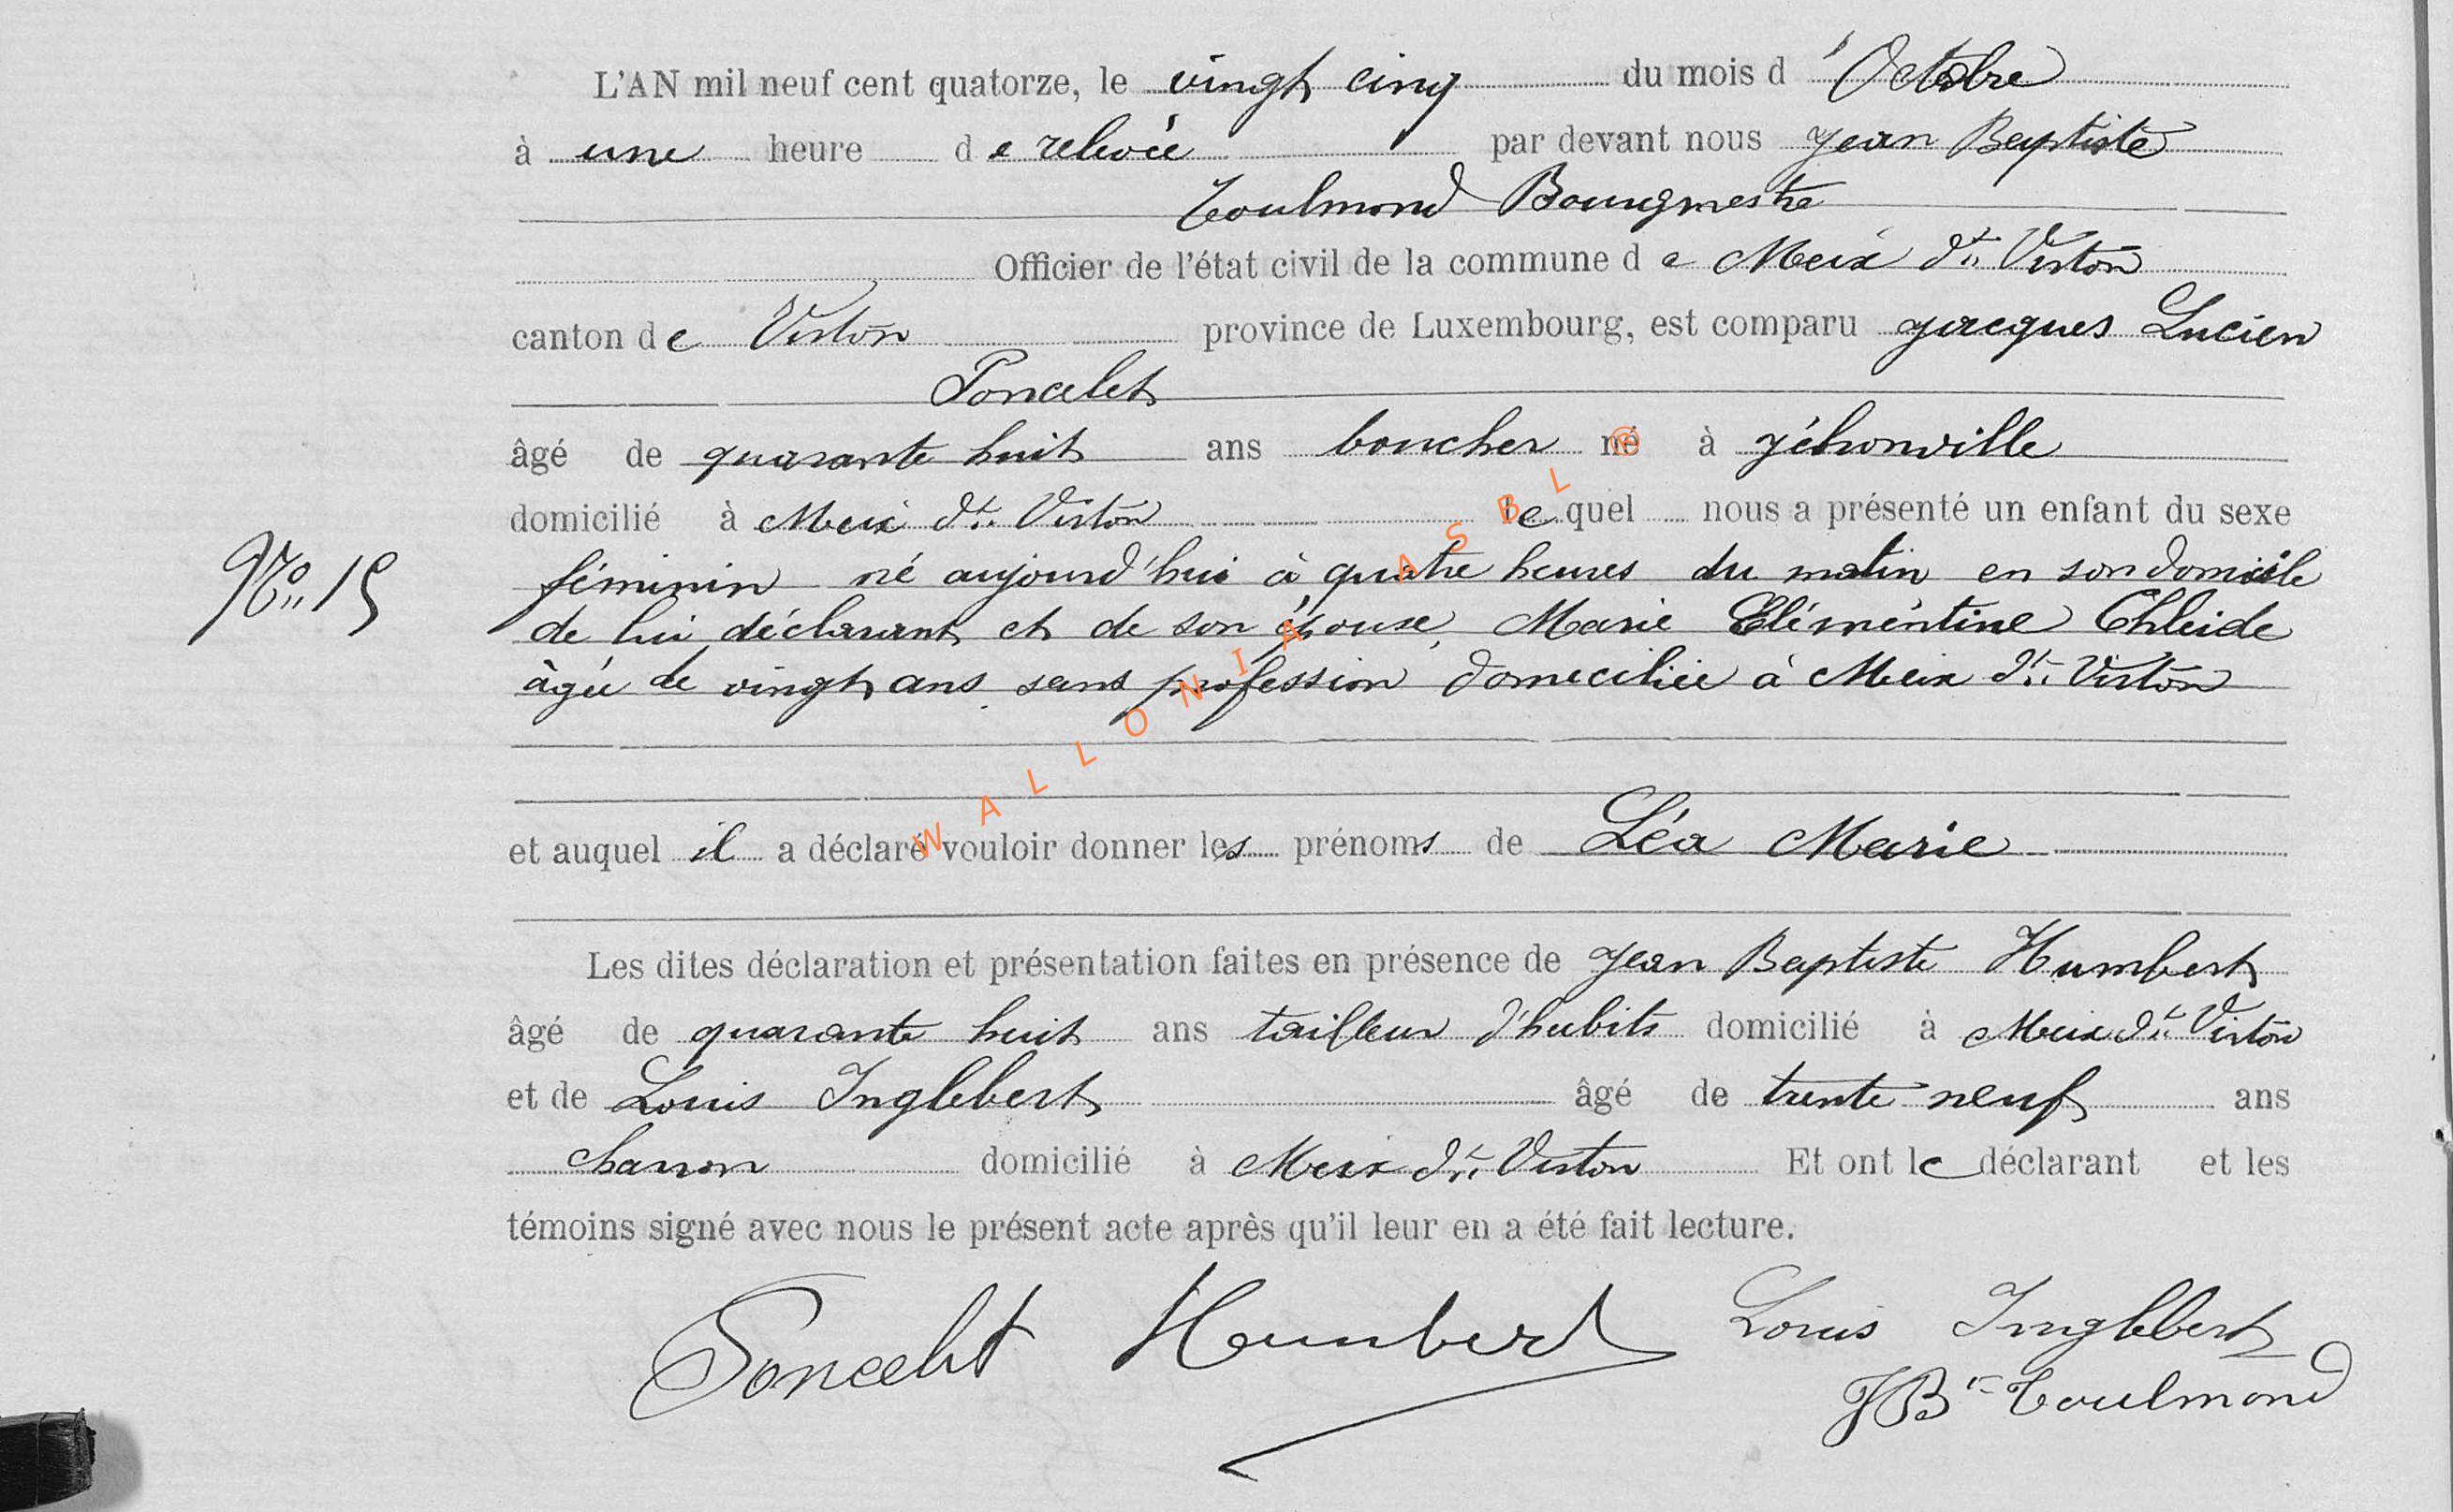 L'AN mil neuf cent quatorze, le vingt cinq du mois d'Octobre
à une heure de relevée par devant nous Jean Baptiste
Toulmond Bourgmestre
Officier de l'état civil de la commune de Meix dt. Virton
canton de Virton province de Luxembourg, est comparu Jacques Lucien
Poncelet
âgé de quarante huit ans boucher né à Jéhonville
domicilié à Meix dt. Virton lequel nous a présenté un enfant du sexe
No. 15 féminin né aujourd'hui à quatre heures du matin en son domicile
de lui déclarant et de son épouse, Marie Clémentine Thleide
âgée de vingt ans sans profession domeciliée à Meix dt. Virton
et auquel il a déclaré vouloir donner les prénoms de Léa Marie
Les dites déclaration et présentation faites en présence de Jean Baptiste Humbert
âgé de quarante huit ans tailleur d'habits domicilié à Meix dt. Virton
et de Louis Inglebert âgé de trente neuf ans
charron domicilié à Meix dt. Virton Et ont le déclarant et les
témoins signé avec nous le présent acte après qu'il leur en a été fait lecture.
Poncelet Humbert Louis Inglebert
JBte Toulmond
WALLONIA ASBL ®